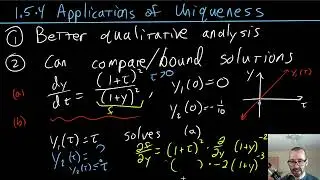 1.5.4 Applications of Uniqueness
① Better qualitative analysis
② Can compare/bound solutions
(a) dy/dt = (1+τ)²/(1+y)² τ>0 y₁(0)=0
(b) f y₂(0)=-1/10
y₁(τ)
τ
y₁(τ)=τ solves (a)
y₂(τ)= ?
y₂(τ)=
∂f/∂y = (1+τ)² ∂/∂y (1+y)⁻²
= ( ) · -2(1+y)⁻³